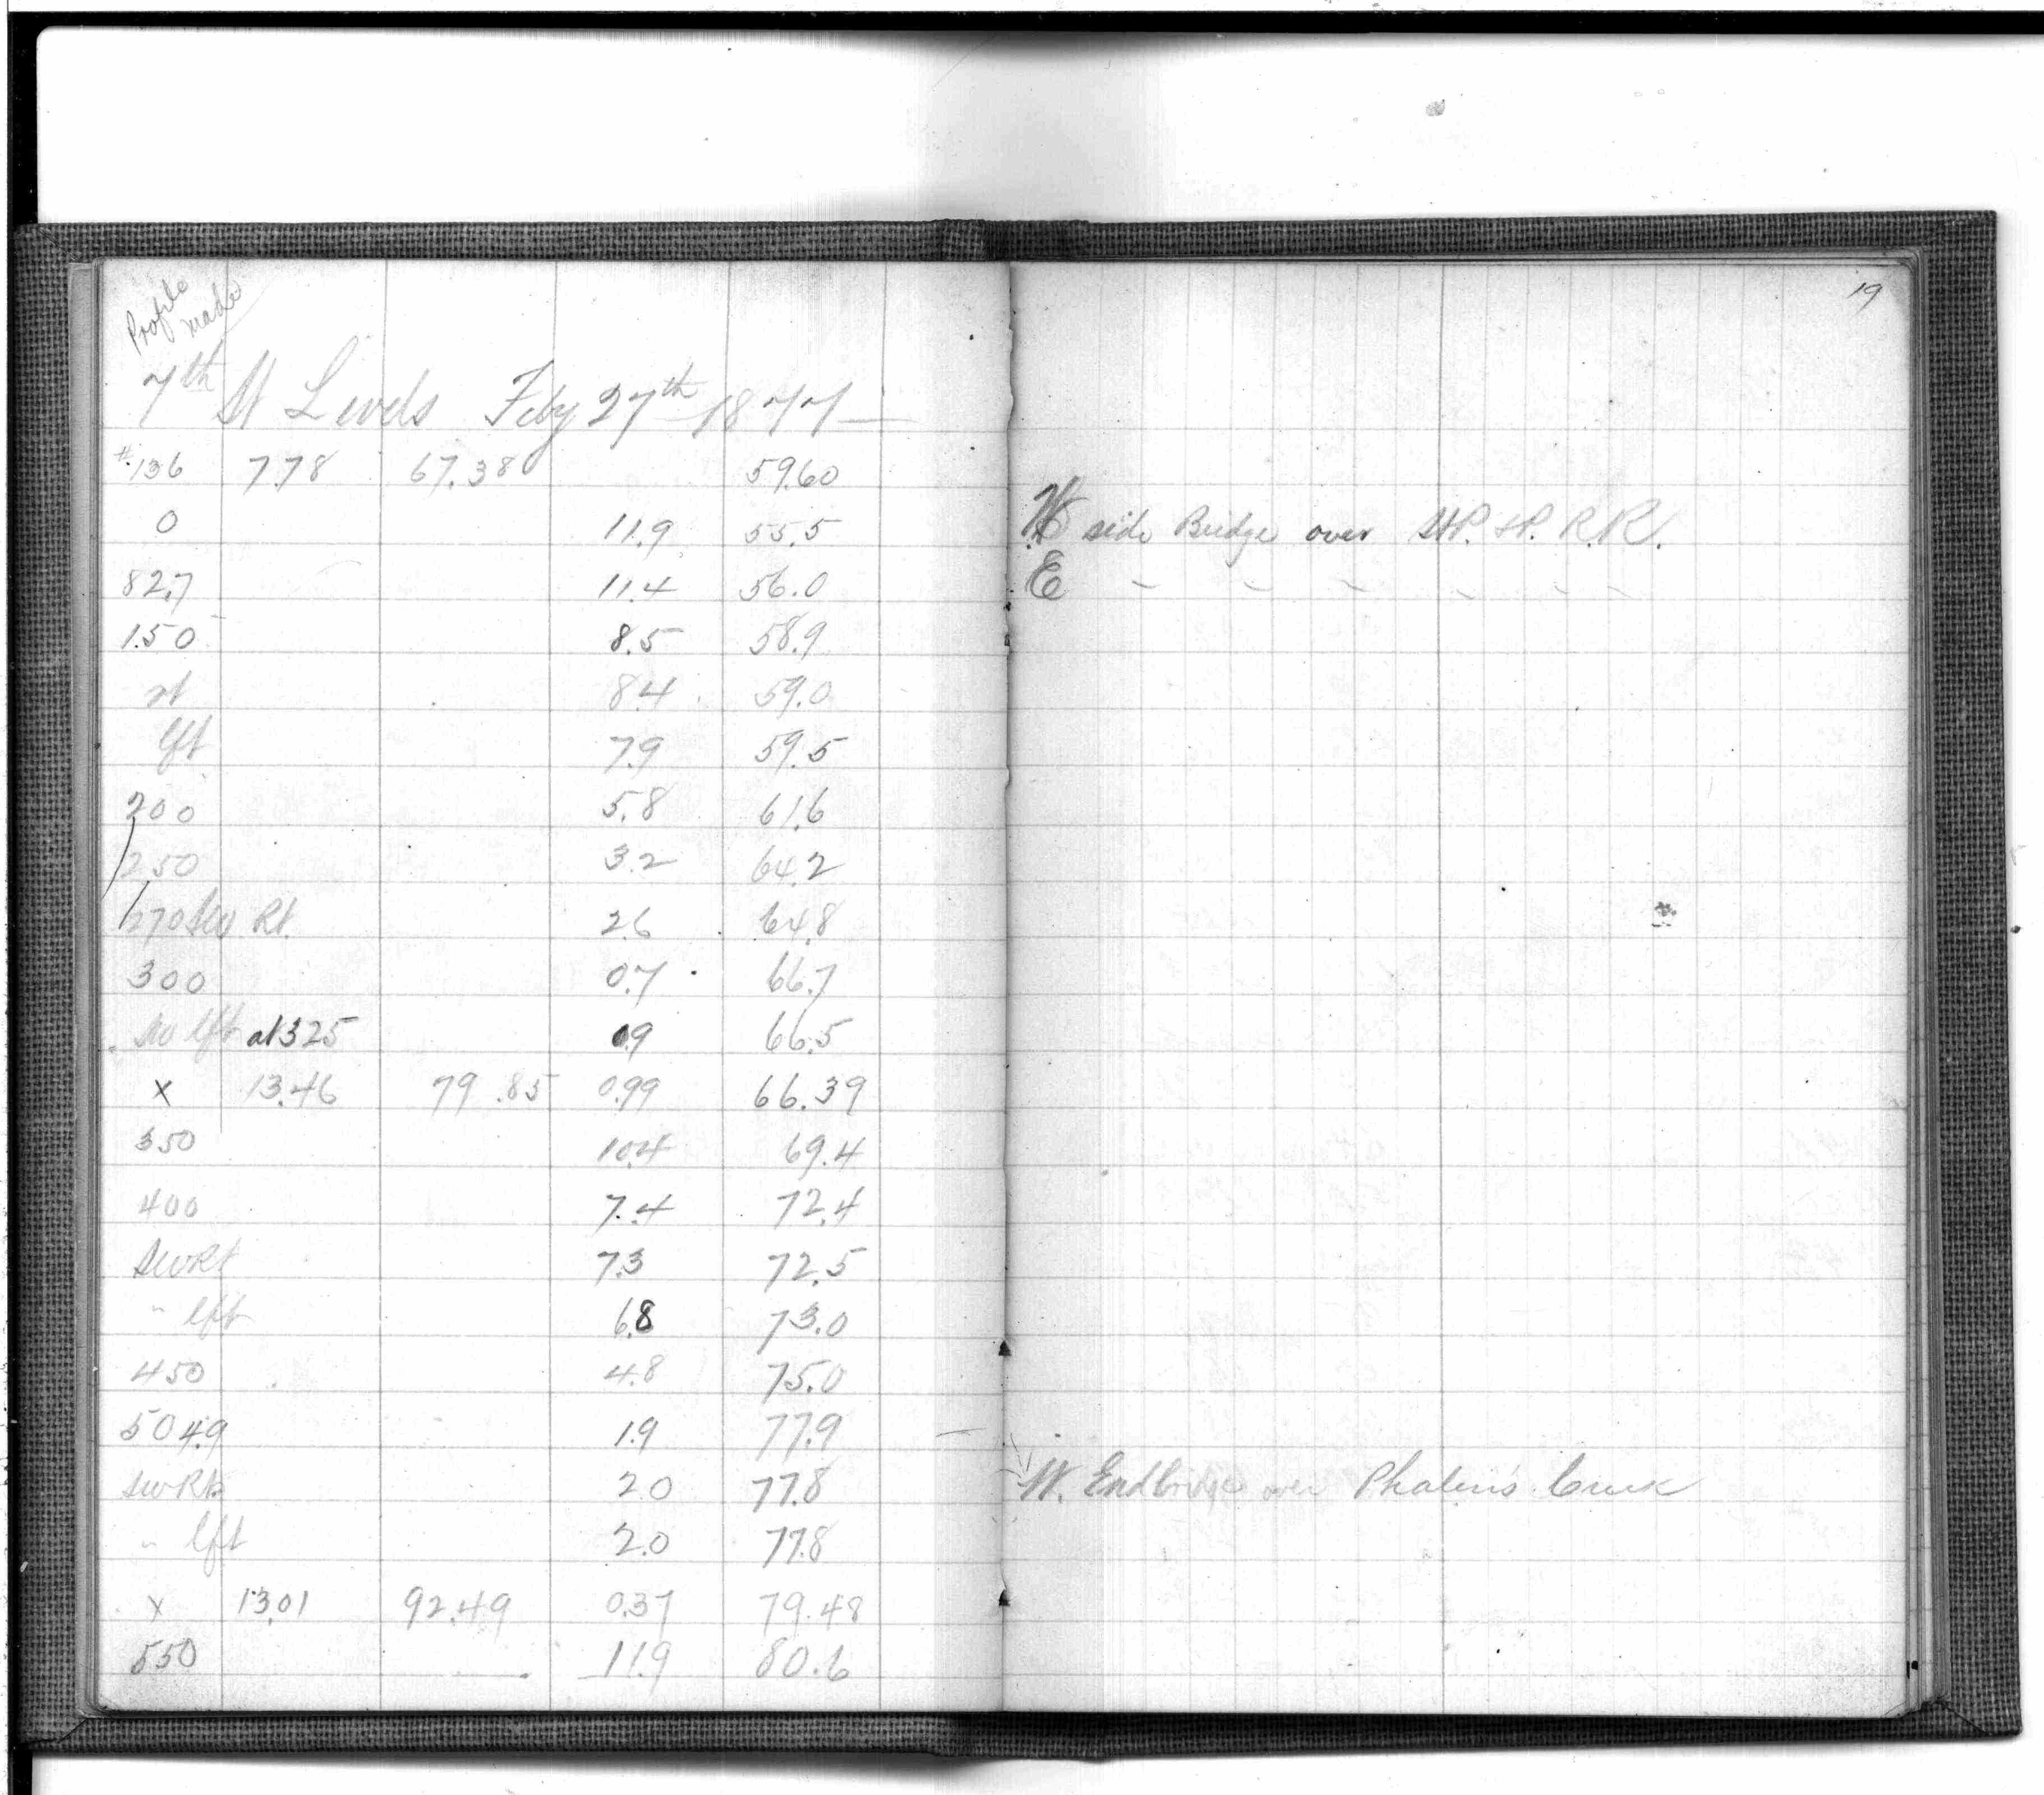 Profile
made
7th St Levels Feby 27th 1877
#136 7.78 67.38 59.60
0 11.9 55.5
82.7 11.4 56.0
150 8.5 58.9
rt 8.4 59.0
lft 7.9 59.5
200 5.8 61.6
250 3.2 64.2
270 SW Rt. 2.6 64.8
300 0.7 66.7
SW lft at 325 0.9 66.5
x 13.46 79.85 0.99 66.39
350 10.4 69.4
400 7.4 72.4
SW Rt 7.3 72.5
" lft 6.8 73.0
450 4.8 75.0
504.9 1.9 77.9
SW Rt 2.0 77.8
" lft 2.0 77.8
x 13.01 92.49 0.37 79.48
550 11.9 80.6
19
W side Bridge over St P. & P. R.R.
E " " " " " "
W. End bridge over Phalen's Creek